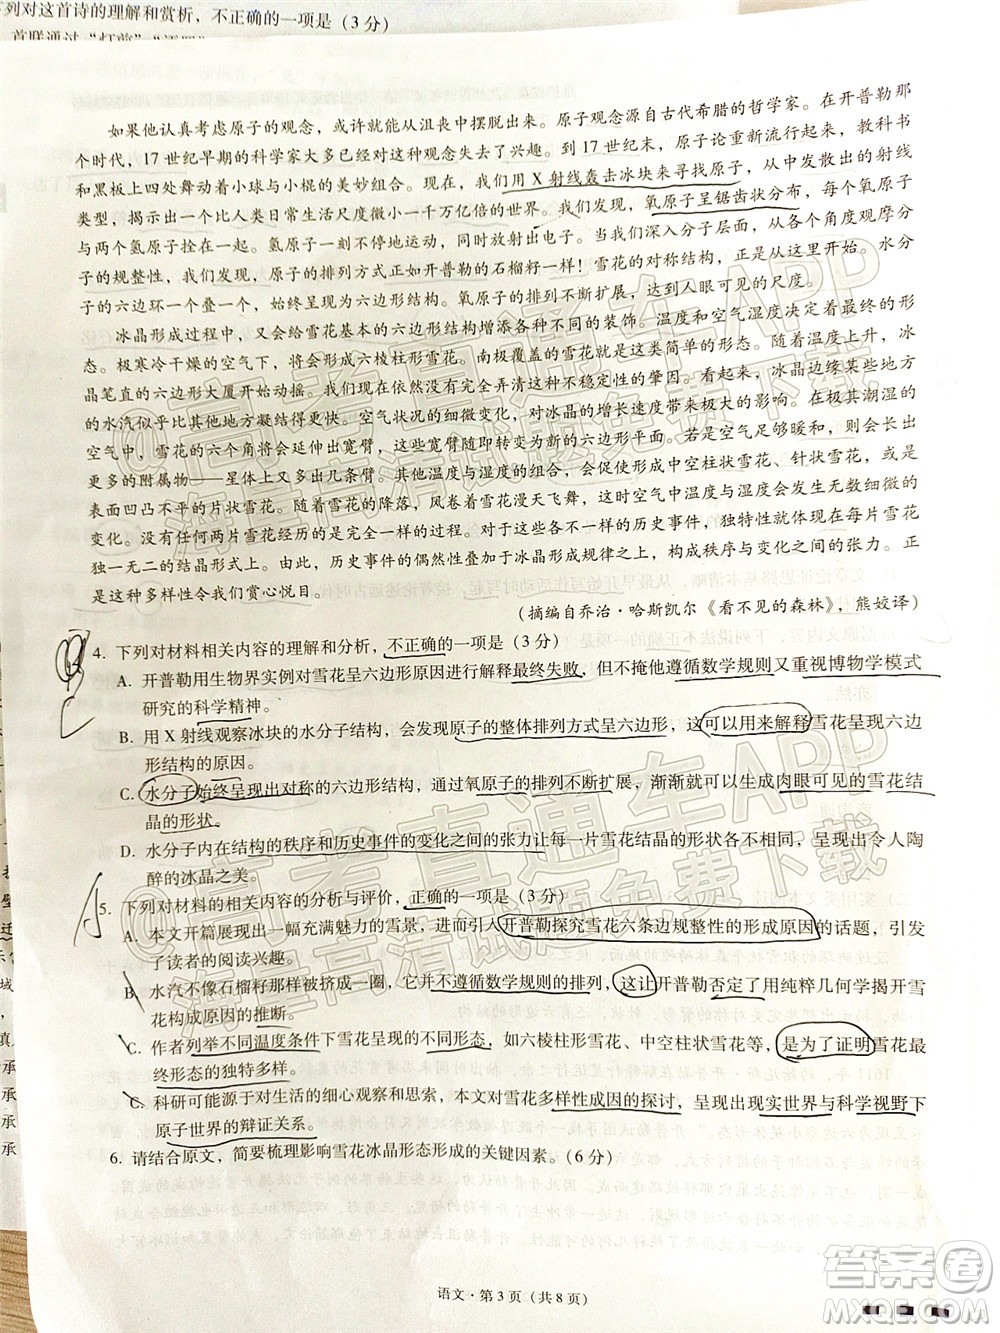 下列对这首诗的理解和赏析，不正确的一项是（3分）
如果他认真考虑原子的观念，或许就能从沮丧中摆脱出来。原子观念源自古代希腊的哲学家。在开普勒那
个时代，17世纪早期的科学家大多已经对这种观念失去了兴趣。到17世纪末，原子论重新流行起来，教科书
和黑板上四处舞动着小球与小棍的美妙组合。现在，我们用X射线轰击冰块来寻找原子，从中发散出的射线
类型，揭示出一个比人类日常生活尺度微小一千万亿倍的世界。我们发现，氧原子呈锯齿状分布，每个氧原子
与两个氢原子拴在一起。氢原子一刻不停地忙碌着，同时放射出电子。我们绕着水分子层面，从各个角度观摩分
子的规整性，我们发现，原子的排列方式正如开普勒的石榴籽一样！雪花的对称结构，正是从这里开始。水分
子的六边环一个叠一个，始终呈现为六边形结构。氧原子的排列不断扩展，直到形成肉眼可见的尺度。
冰晶形成过程中，又会给雪花基本的六边形结构增添各种不同的装饰。温度和空气湿度决定着最终的形
态。极寒冷干燥的空气下，将会形成六棱柱形雪花。南极覆盖的雪花就是这类简单的形态。随着温度上升，冰
晶笔直的六边形大厦开始动摇。我们尚未完全弄清这种不稳定性的肇因。看起来，冰晶边缘某些地方
的水汽似乎比其他地方凝结得更快。空气状况的细微变化，对冰晶的增长速度带来极大的影响。在极其潮湿的
空气中，雪花的六个角将会延伸出宽臂，这些宽臂随即转变成新的六边形平面。若是空气足够暖和，则会长出
更多的附属物——星星的枝臂上又多出几条。其他温度与湿度的组合，会促使形成中空柱状雪花、针状雪花，或
凹凸不平的片状雪花。随着雪花的降落，风卷着雪花漫天飞舞，在这空气中温度与湿度的无数种细微变化
。没有任何两片雪花经历的是完全一样的过程。对于这些各不一样的历史事件，独特性就体现在每片雪花
独一无二的结晶形式上。由此，历史事件的偶然性与冰晶形成规律之间，构成秩序与变化之间的张力。正
是这种多样性令我们赏心悦目。
（摘编自乔治·哈斯凯尔《看不见的森林》，熊姣译）
4. 下列对材料相关内容的理解和分析，不正确的一项是（3分）
A. 开普勒用生物界实例对雪花呈六边形进行解释最终失败，但不掩他遵循数学规则又重视博物学模式
研究的科学精神。
B. 用X射线观察冰块的水分子结构，会发现原子的整体排列方式呈六边形，这可以用来解释雪花呈现六边
形结构的原因。
C. 水分子始终呈现出对称的六边形结构，通过氧原子的排列不断扩展，渐渐就可以生成肉眼可见的雪花结
晶的形状。
D. 水分子内在结构的秩序和历史事件的变化之间的张力让每一片雪花结晶的形状各不相同，呈现出令人陶
醉的冰晶之美。
5. 下列对材料的相关内容的分析与评价，正确的一项是（3分）
A. 本文开篇展现出一幅充满魅力的雪景，进而引入开普勒探究雪花六条边规整性的形成原因的话题，引发
了读者的阅读兴趣。
B. 水汽不像石榴籽那样挤成一圈，它并不遵循数学规则的排列，这让开普勒否定了用纯粹几何学解释雪
花构成原因的推断。
C. 作者列举不同温度条件下雪花呈现的不同形态，如六棱柱形雪花、中空柱状雪花等，是为了证明雪花最
终形态的独特多样。
D. 科研可能源于对生活的细心观察和思索，本文对雪花多样性成因的探讨，呈现出现实世界与科学视野下
原子世界的辩证关系。
6. 请结合原文，简要梳理影响雪花冰晶形态形成的关键因素。（6分）
语文·第3页（共8页）
答案圈
MXQE.COM